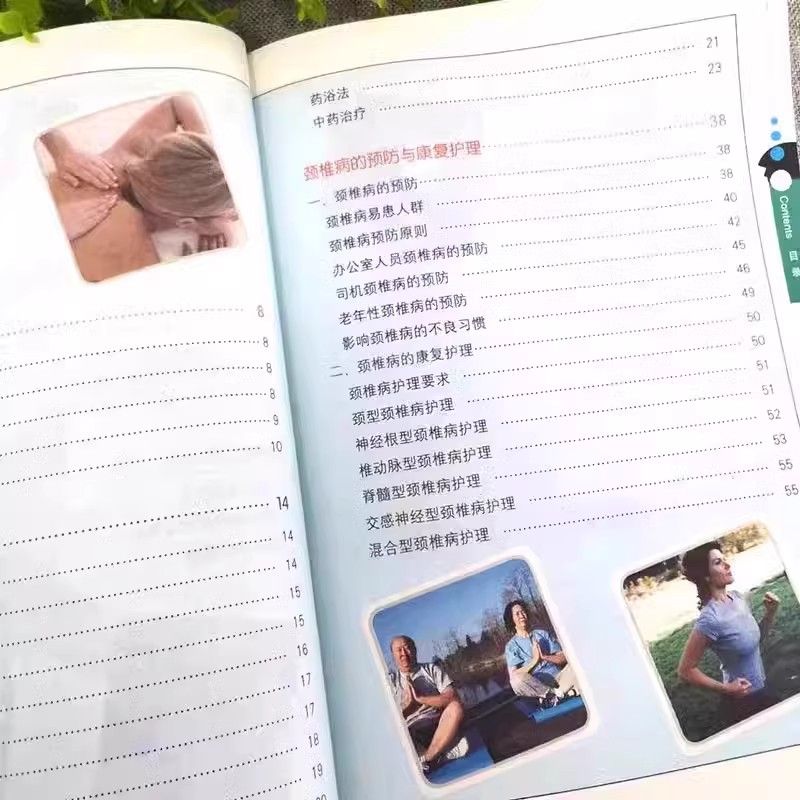 8
8
8
8
9
10
14
14
14
15
15
16
17
17
18
19
药浴法 21
中药治疗 23
颈椎病的预防与康复护理 38
一、颈椎病的预防 38
颈椎病易患人群 38
颈椎病预防原则 40
办公室人员颈椎病的预防 42
司机颈椎病的预防 45
老年性颈椎病的预防 46
影响颈椎病的不良习惯 49
二、颈椎病的康复护理 50
颈椎病护理要求 50
颈型颈椎病护理 51
神经根型颈椎病护理 51
椎动脉型颈椎病护理 52
脊髓型颈椎病护理 53
交感神经型颈椎病护理 55
混合型颈椎病护理 55
Contents
目录